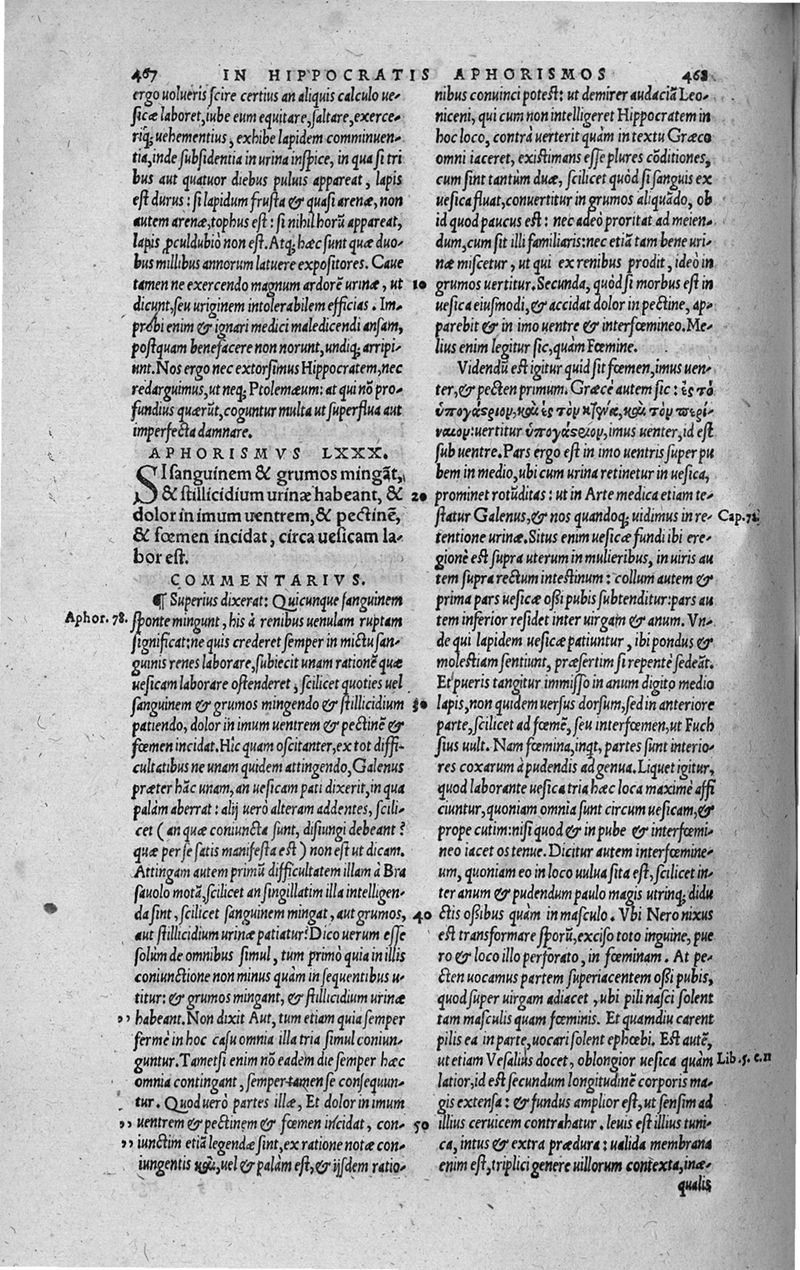 467 IN HIPPOCRATIS APHORISMOS 468
ergo uolueris scire certius an aliquis calculo ue-
sicæ laboret, iube eum equitare, saltare, exerce-
riq; uehementius, exhibe lapidem comminuen-
tia, inde subsidentia in urina inspice, in qua si tri
bus aut quatuor diebus puluis appareat, lapis
est durus: si lapidum frusta & quasi arenæ, non
autem arenæ, tophus est: si nihil horū appareat,
lapis ꝓculdubiò non est. Atq; hæc sunt quæ duo-
bus millibus annorum latuere expositores. Caue
tamen ne exercendo magnum ardorē urinæ, ut
dicunt, seu uriginem intolerabilem efficias. Im-
probi enim & ignari medici maledicendi ansam,
postquam benefacere non norunt, undiq; arripi-
unt. Nos ergo nec extorsimus Hippocratem, nec
redarguimus, ut neq; Ptolemæum: at qui nō pro-
fundius quærūt, coguntur multa ut superflua aut
imperfecta damnare.
APHORISMVS LXXX.
SI sanguinem & grumos mingāt,
& stillicidium urinæ habeant, &
dolor in imum uentrem, & pectinē,
& fœmen incidat, circa uesicam la-
bor est.
COMMENTARIVS.
¶ Superius dixerat: Quicunque sanguinem
Aphor. 78. sponte mingunt, his à renibus uenulam ruptam
significat: ne quis crederet semper in mictu san-
guinis renes laborare, subiecit unam rationē quæ
uesicam laborare ostenderet, scilicet quoties uel
sanguinem & grumos mingendo & stillicidium
patiendo, dolor in imum uentrem & pectinē &
fœmen incidat. Hic quam oscitanter, ex tot diffi-
cultatibus ne unam quidem attingendo, Galenus
præter hāc unam, an uesicam pati dixerit, in qua
palàm aberrat: alij uerò alteram addentes, scili-
cet (an quæ coniuncta sunt, disiungi debeant?
quæ per se satis manifesta est) non est ut dicam.
Attingam autem primū difficultatem illam à Bra
sauolo motā, scilicet an singillatim illa intelligen-
da sint, scilicet sanguinem mingat, aut grumos,
aut stillicidium urinæ patiatur? Dico uerum esse
solùm de omnibus simul, tum primò quia in illis
coniunctione non minus quàm in sequentibus u-
titur: & grumos mingant, & stillicidium urinæ
,, habeant. Non dixit Aut, tum etiam quia semper
fermè in hoc casu omnia illa tria simul coniun-
guntur. Tametsi enim nō eadem die semper hæc
omnia contingant, semper tamen se consequun-
tur. Quod uerò partes illæ, Et dolor in imum
,, uentrem & pectinem & fœmen incidat, con-
,, iunctim etiā legendæ sint, ex ratione notæ con-
iungentis καὶ, uel & palàm est, & ijsdem ratio-
nibus conuinci potest: ut demirer audaciā Leo-
niceni, qui cum non intelligeret Hippocratem in
hoc loco, contrà uerterit quàm in textu Græco
omni iaceret, existimans esse plures cōditiones,
cum sint tantùm duæ, scilicet quòd si sanguis ex
uesica fluat, conuertitur in grumos aliquādo, ob
id quod paucus est: nec adeò proritat ad meien-
dum, cum sit illi familiaris: nec etiā tam bene uri-
næ miscetur, ut qui ex renibus prodit, ideò in
10 grumos uertitur. Secunda, quòd si morbus est in
uesica eiusmodi, & accidat dolor in pectine, ap-
parebit & in imo uentre & interfœmineo. Me-
lius enim legitur sic, quàm Fœmine.
Videndū est igitur quid sit fœmen, imus uen-
ter, & pecten primum. Græcè autem sic: ἐς τὸ
ὑπογάστριον, καὶ ἐς τὸν κτένα, καὶ τὸν περί-
ναιον: uertitur ὑπογάστριον, imus uenter, id est
sub uentre. Pars ergo est in imo uentris super pu
bem in medio, ubi cum urina retinetur in uesica,
20 prominet rotūditas: ut in Arte medica etiam te-
statur Galenus, & nos quandoq; uidimus in re- Cap. 78.
tentione urinæ. Situs enim uesicæ fundi ibi ere-
gionē est supra uterum in mulieribus, in uiris au
tem supra rectum intestinum: collum autem &
prima pars uesicæ ossi pubis subtenditur: pars au
tem inferior residet inter uirgam & anum. Vn-
de qui lapidem uesicæ patiuntur, ibi pondus &
molestiam sentiunt, præsertim si repentè sedeāt.
Et pueris tangitur immisso in anum digito medio
30 lapis, non quidem uersus dorsum, sed in anteriore
parte, scilicet ad fœmē, seu interfœmen, ut Fuch
sius uult. Nam fœmina, inqt, partes sunt interio-
res coxarum à pudendis ad genua. Liquet igitur,
quod laborante uesica tria hæc loca maximè affi
ciuntur, quoniam omnia sunt circum uesicam, &
prope cutim: nisi quod & in pube & interfœmi-
neo iacet os tenue. Dicitur autem interfœmine-
um, quoniam eo in loco uulua sita est, scilicet in-
ter anum & pudendum paulo magis utrinq; didu
40 ctis ossibus quàm in masculo. Vbi Nero nixus
est transformare sporū, exciso toto inguine, pue
ro & loco illo perforato, in fœminam. At pe-
cten uocamus partem superiacentem ossi pubis,
quod super uirgam adiacet, ubi pili nasci solent
tam masculis quam fœminis. Et quamdiu carent
pilis ea in parte, uocari solent ephœbi. Est autē,
ut etiam Vesalius docet, oblongior uesica quàm Lib. 5. c. 11
latior, id est secundum longitudinē corporis ma-
gis extensa: & fundus amplior est, ut sensim ad
50 illius ceruicem contrahatur. leuis est illius tuni-
ca, intus & extra prædura: ualida membrana
enim est, triplici genere uillorum contexta, inæ-
qualis